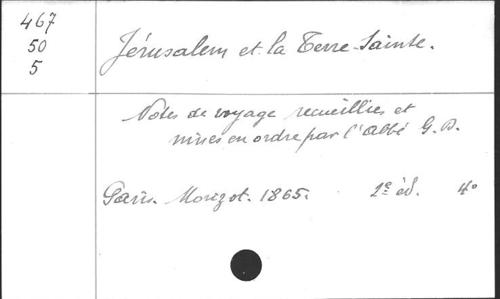 467
50
5
Jérusalem et la Terre-Sainte.
Notes de voyage recueillies et
mises en ordre par l'abbé G. D.
Paris. Morizot. 1865. 2e éd. 4o